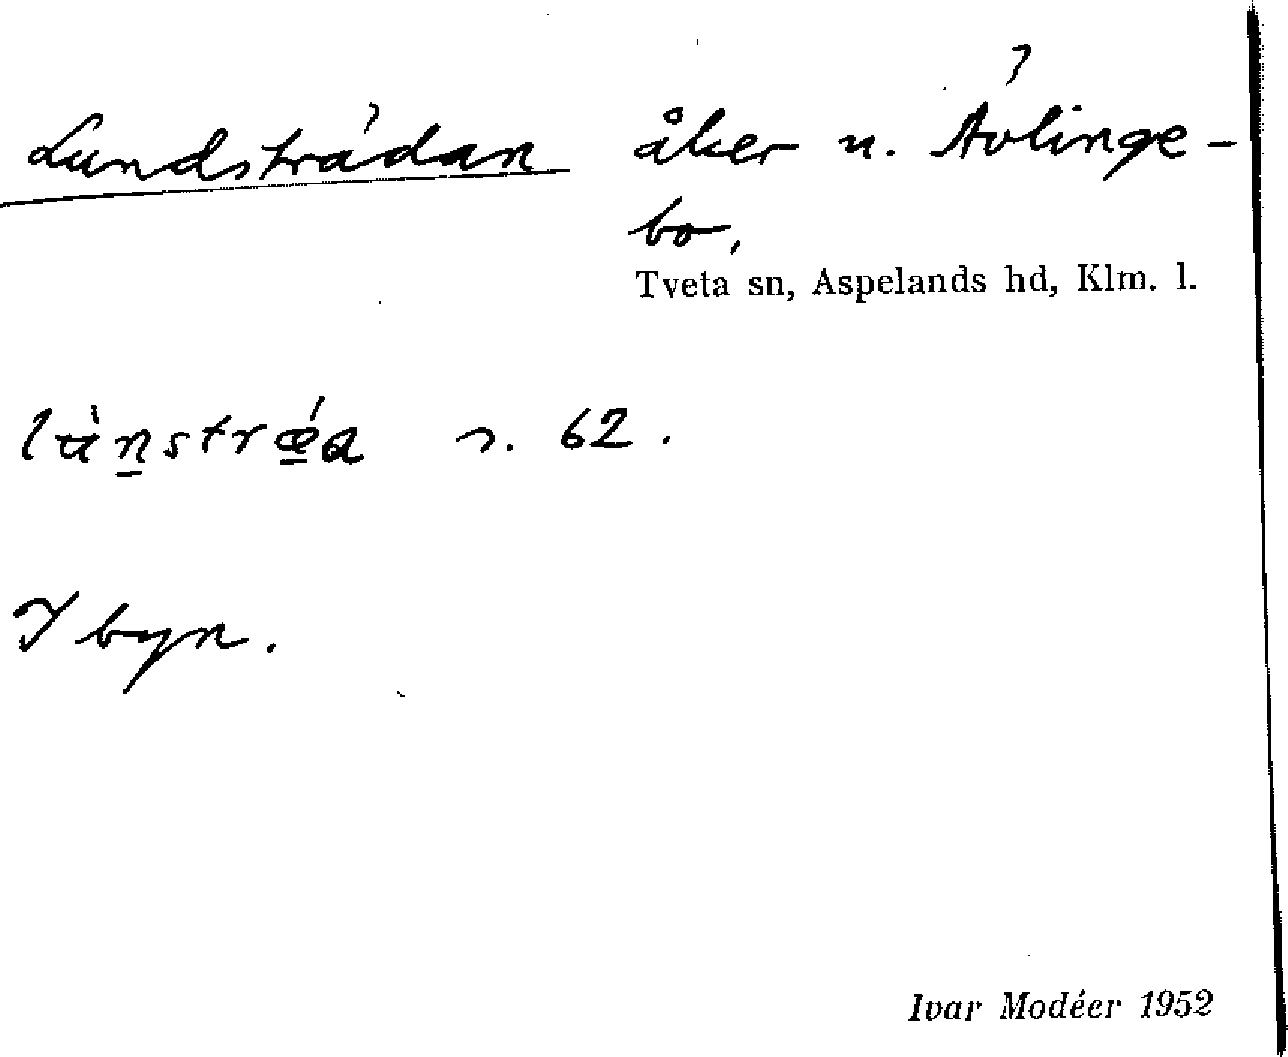 Lundsträdan åker u. Ävlinge-
bo,
Tveta sn, Aspelands hd, Klm. l.
s. 62.
I byn.
Ivar Modéer 1952